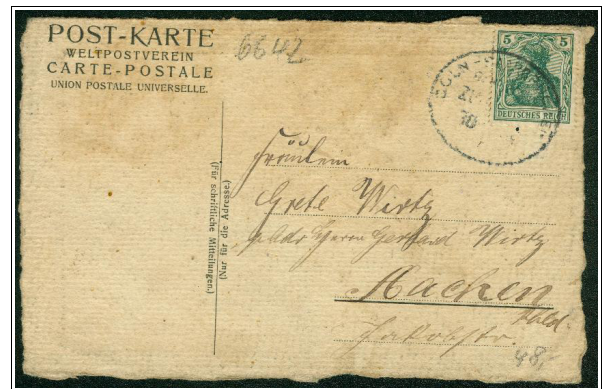 POST-KARTE
WELTPOSTVEREIN
CARTE-POSTALE
UNION POSTALE UNIVERSELLE.
6642
5 5
DEUTSCHES REICH
(Für schriftliche Mitteilungen.)
(Nur für die Adresse.)
Fräulein
Grete Wirtz
Herrn Gerhard Wirtz
Aachen
Jakobstr.
48